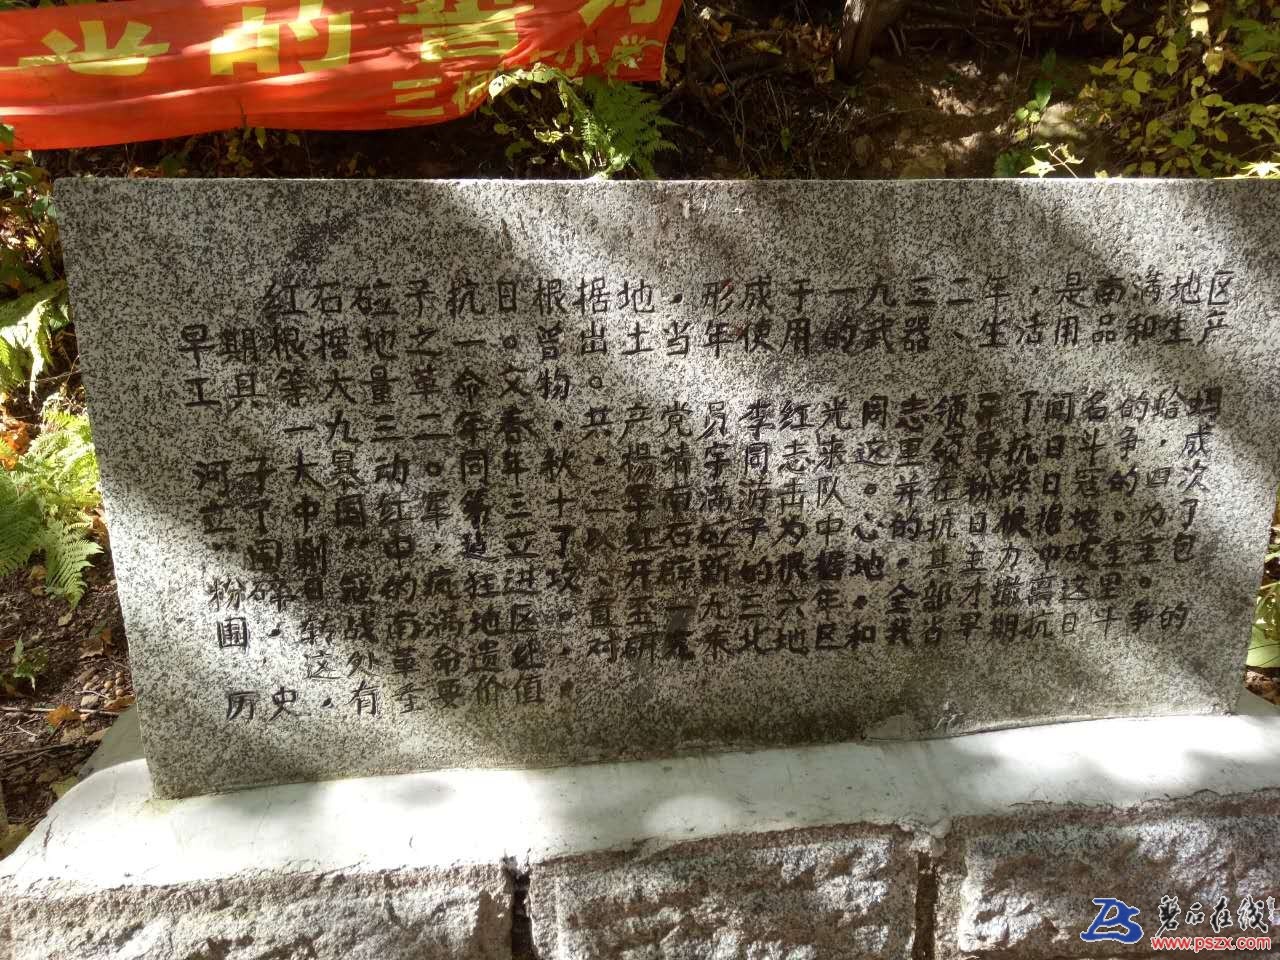 的
红石砬子抗日根据地,形成于一九三二年,是南满地区
早期根据地之一。曾出土当年使用的武器、生活用品和生产
工具等大量革命文物。
一九三二年春,共产党员李红光同志领导了闻名的蛤蚂
河子大暴动。同年秋,杨靖宇同志来这里领导抗日斗争,成
立了中国红军第三十二军南满游击队。并在粉碎日寇的四次
“围剿”中,建立了以红石砬子为中心的抗日根据地。为了
粉碎日寇的疯狂进攻、开辟新的根据地,其主力冲破重重包
围,转战南满地区。直至一九三六年全部才撤离这里。
这处革命遗址,对研究东北地区和我省早期抗日斗争的
历史,有重要价值。
磐石在线
www.pszx.com